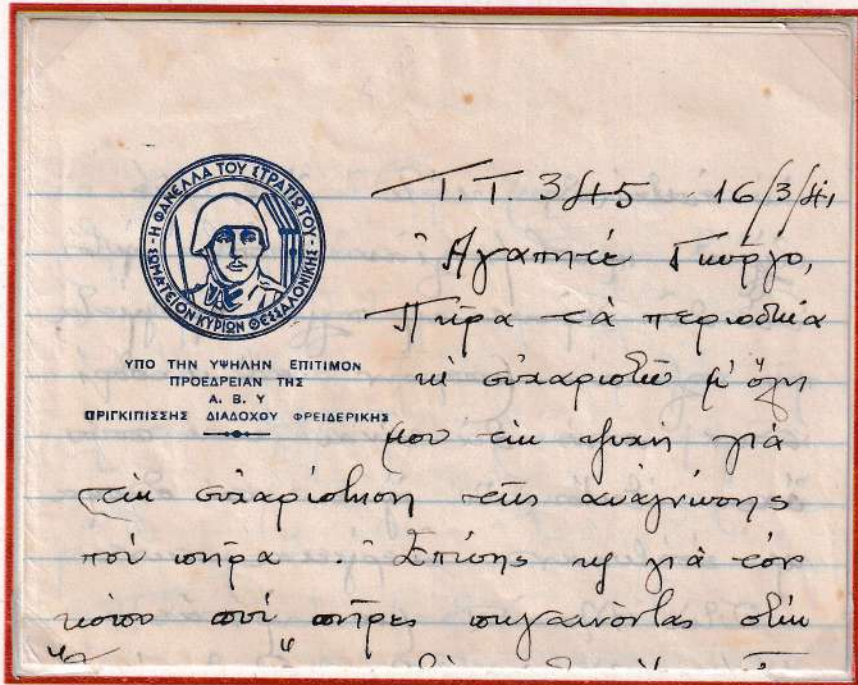 Η ΦΑΝΕΛΛΑ ΤΟΥ ΣΤΡΑΤΙΩΤΟΥ - ΣΩΜΑΤΕΙΟΝ ΚΥΡΙΩΝ ΘΕΣΣΑΛΟΝΙΚΗΣ -
ΥΠΟ ΤΗΝ ΥΨΗΛΗΝ ΕΠΙΤΙΜΟΝ
ΠΡΟΕΔΡΕΙΑΝ ΤΗΣ
Α. Β. Υ
ΠΡΙΓΚΙΠΙΣΣΗΣ ΔΙΑΔΟΧΟΥ ΦΡΕΙΔΕΡΙΚΗΣ
Τ.Τ. 345 16/3/41
Ἀγαπητέ Γιῶργο,
Πῆρα τὰ περιοδικά
κι εὐχαριστῶ μ' ὅλη
μου τὴν ψυχή γιὰ
τὴν εὐχαρίστηση τῆς ἀνάγνωσης
πού πῆρα. Ἐπίσης κ γιὰ τὸν
κόπο πού πῆρες πηγαίνοντας στὴν